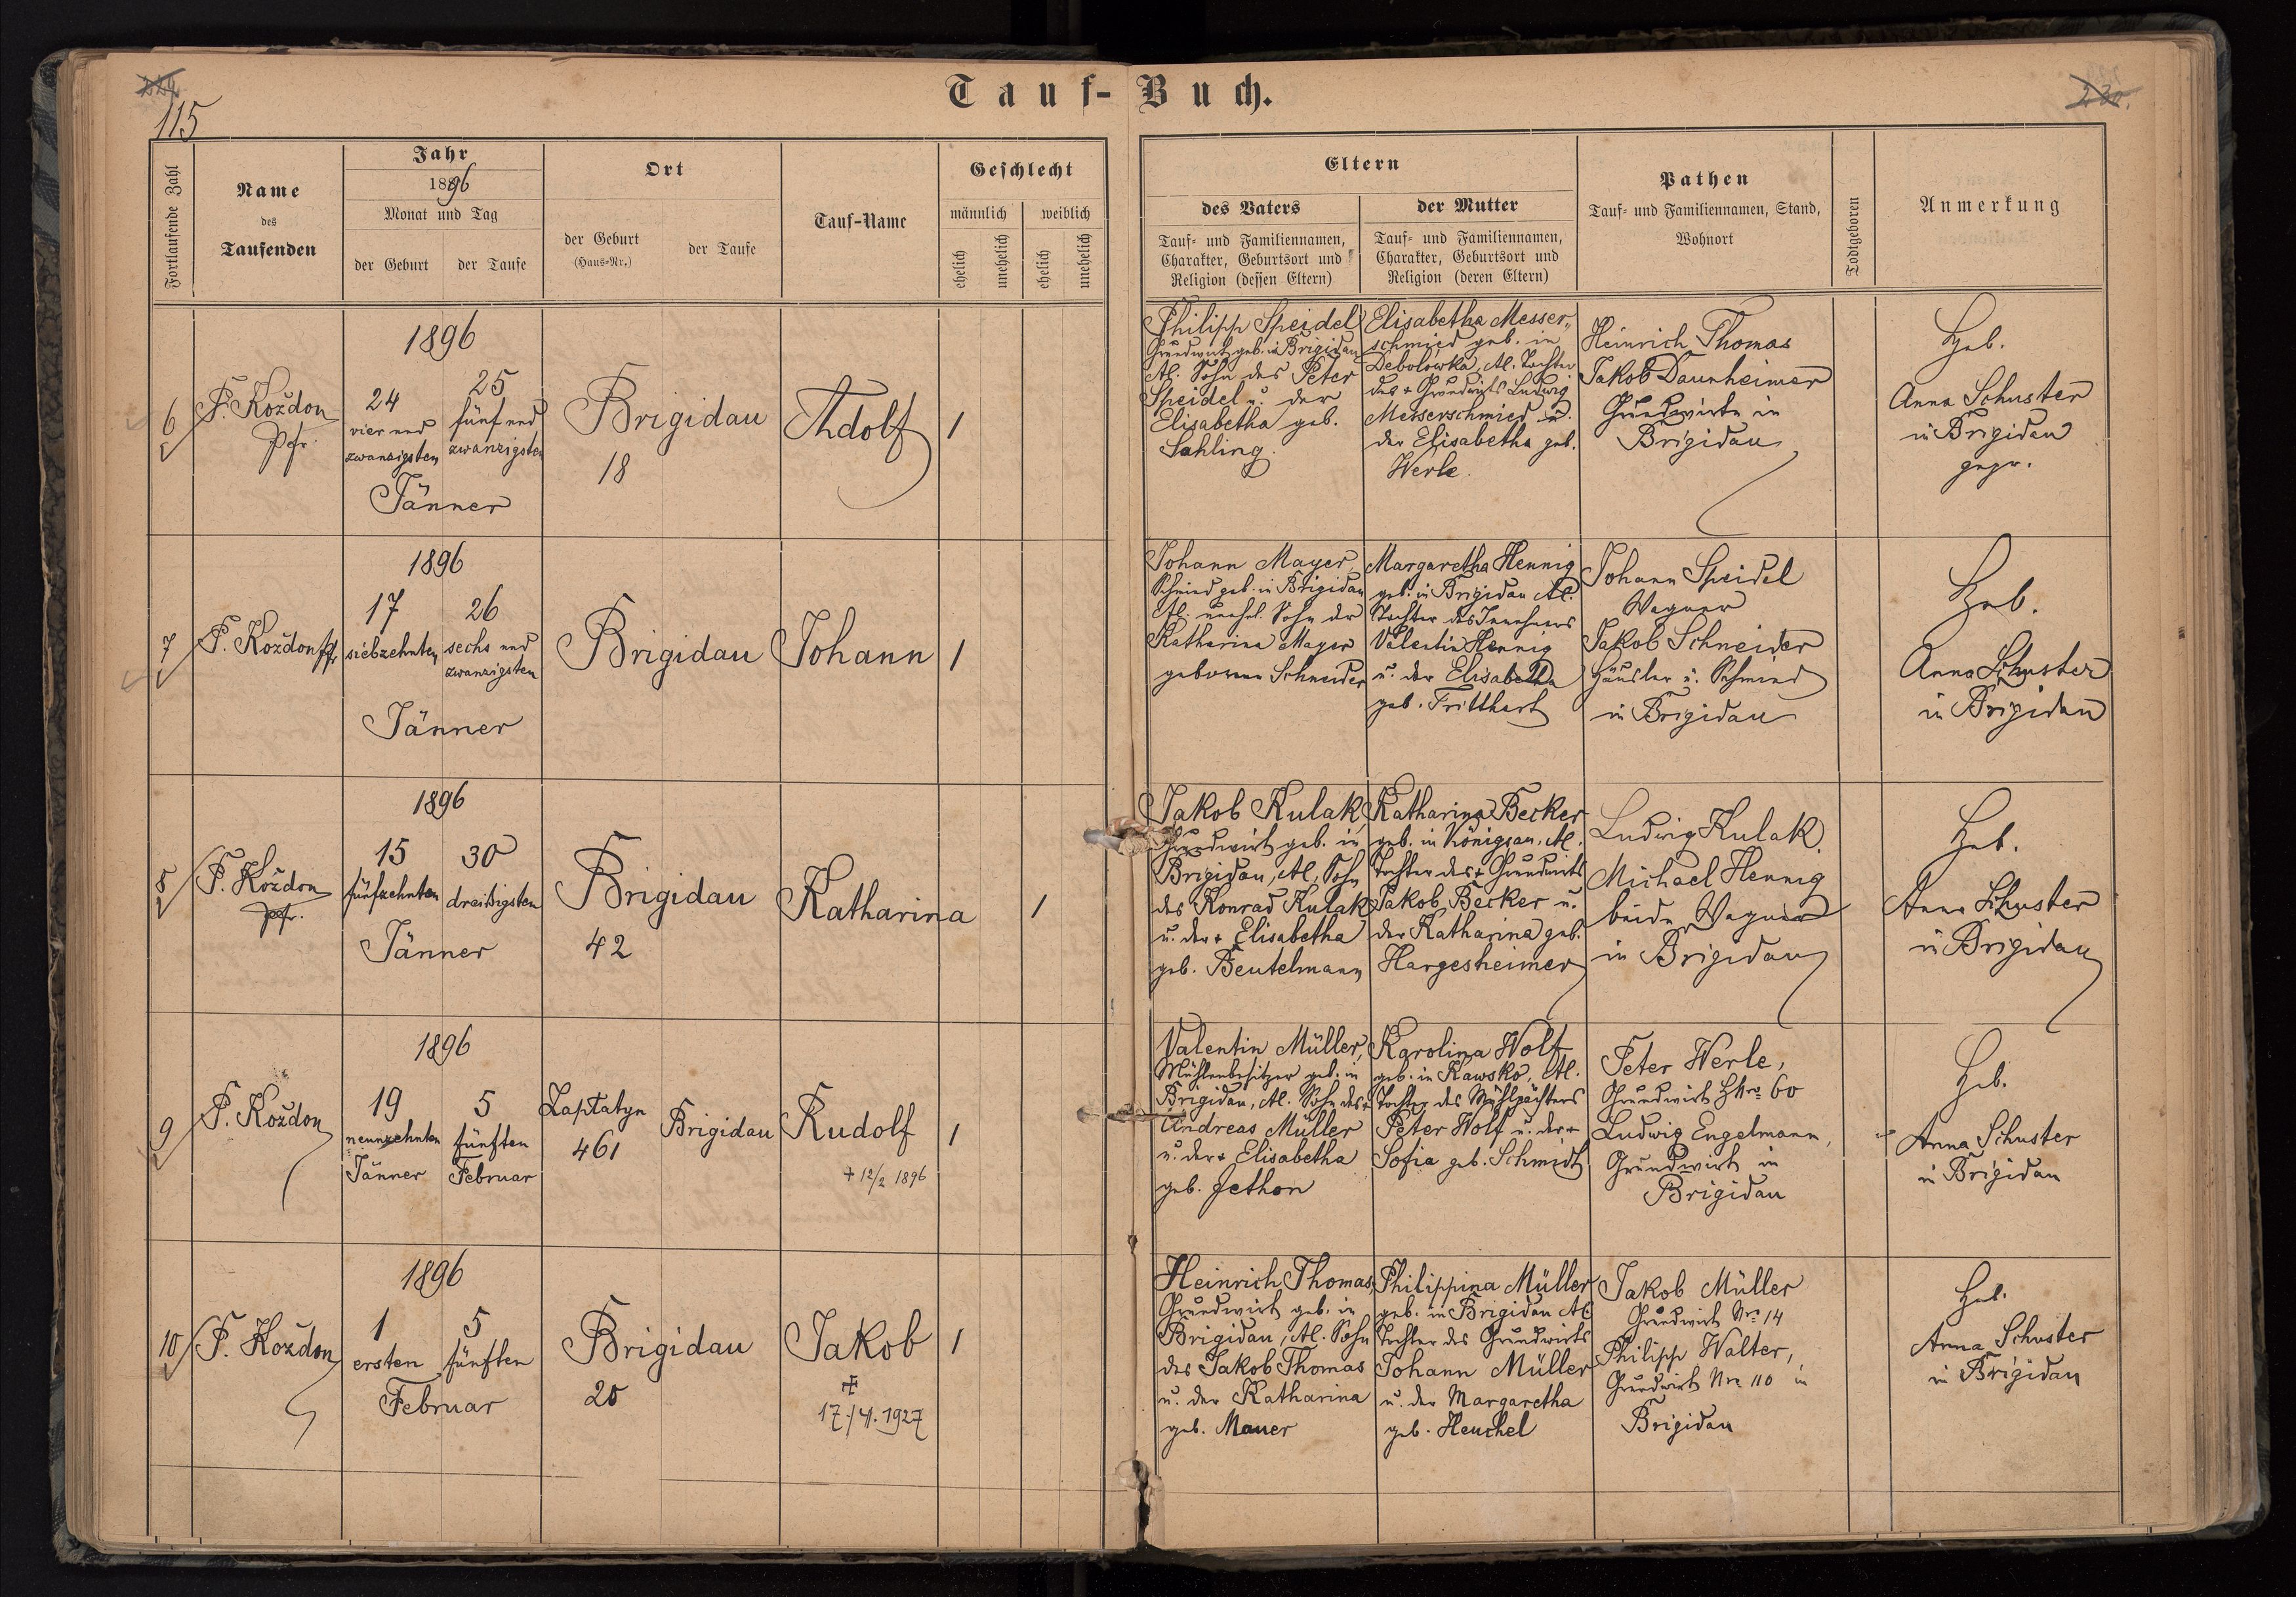 115
Tauf-Buch.
Fortlaufende Zahl
Name
des
Taufenden
Jahr
1896
Monat und Tag
der Geburt
der Taufe
Ort
der Geburt
(Haus-Nr.)
der Taufe
Tauf-Name
Geschlecht
männlich
weiblich
ehelich
unehelich
ehelich
unehelich
Eltern
des Vaters
Tauf- und Familiennamen,
Charakter, Geburtsort und
Religion (dessen Eltern)
der Mutter
Tauf- und Familiennamen,
Charakter, Geburtsort und
Religion (deren Eltern)
Pathen
Tauf- und Familiennamen, Stand,
Wohnort
Todtgeboren
Anmerkung
6
F. Kozdon
Pfr.
1896
24
vier und
zwanzigsten
25
fünf und
zwanzigsten
Jänner
Brigidau
18
Adolf
1
Philipp Speidel
Grundwirt geb. in Brigidau
Al. Sohn des Peter
Speidel u. der
Elisabetha geb.
Sahling.
Elisabetha Messer-
schmied geb. in
Debolowka, Al. Tochter
des + Grundwirts Ludwig
Messerschmied u.
der Elisabetha geb.
Werle.
Heinrich Thomas
Jakob Daunheimer
Grundwirte in
Brigidau
Heb.
Anna Schuster
in Brigidau
gepr.
7
F. Kozdon Pfr.
1896
17
siebzehnten
26
sechs und
zwanzigsten
Jänner
Brigidau
Johann
1
Johann Mayer,
Schmied geb. in Brigidau
Al. unehl. Sohn der
Katharina Mayer
geborene Schneider
Margaretha Hennig
geb. in Brigidau Al.
Tochter des Inwohners
Valentin Hennig
u. der Elisabetha
geb. Fritthart
Johann Speidel
Wagner
Jakob Schneider
Häusler u. Schmied
in Brigidau
Heb.
Anna Schuster
in Brigidau
8
F. Kozdon
Pfr.
1896
15
fünfzehnten
30
dreißigsten
Jänner
Brigidau
42
Katharina
1
Jakob Kulak,
Grundwirt geb. in
Brigidau, Al, Sohn
des Konrad Kulak
u. der + Elisabetha
geb. Beutelmann
Katharina Becker
geb. in Königsau, Al.
Tochter des + Grundwirts
Jakob Becker u.
der Katharina geb.
Hargesheimer
Ludwig Kulak
Michael Hennig
beide Wagner
in Brigidau
Heb.
Anna Schuster
in Brigidau
9
F. Kozdon
1896
19
neunzehnten
Jänner
5
fünften
Februar
Laptatyn
461
Brigidau
Rudolf
+ 12/2 1896
1
Valentin Müller,
Mühlenbesitzer geb. in
Brigidau, Al. Sohn des +
Andreas Müller
u. der + Elisabetha
geb. Jethon
Karolina Wolf
geb. in Rawsko, Al.
Tochter des Mühlpächters
Peter Wolf u. der +
Sofia geb. Schmidt
Peter Werle,
Grundwirt HNro 60
Ludwig Engelmann,
Grundwirt in
Brigidau
Heb.
Anna Schuster
in Brigidau
10
F. Kozdon
1896
1
ersten
5
fünften
Februar
Brigidau
20
Jakob
+
17./4. 1927
1
Heinrich Thomas,
Grundwirt geb. in
Brigidau, Al. Sohn
des Jakob Thomas
u. der Katharina
geb. Mauer
Philippina Müller
geb. in Brigidau Al
Tochter des Grundwirts
Johann Müller
u. der Margaretha
geb. Heuchel
Jakob Müller
Grundwirt Nro 14
Philipp Walter,
Grundwirt Nro 110 in
Brigidau
Heb.
Anna Schuster
in Brigidau